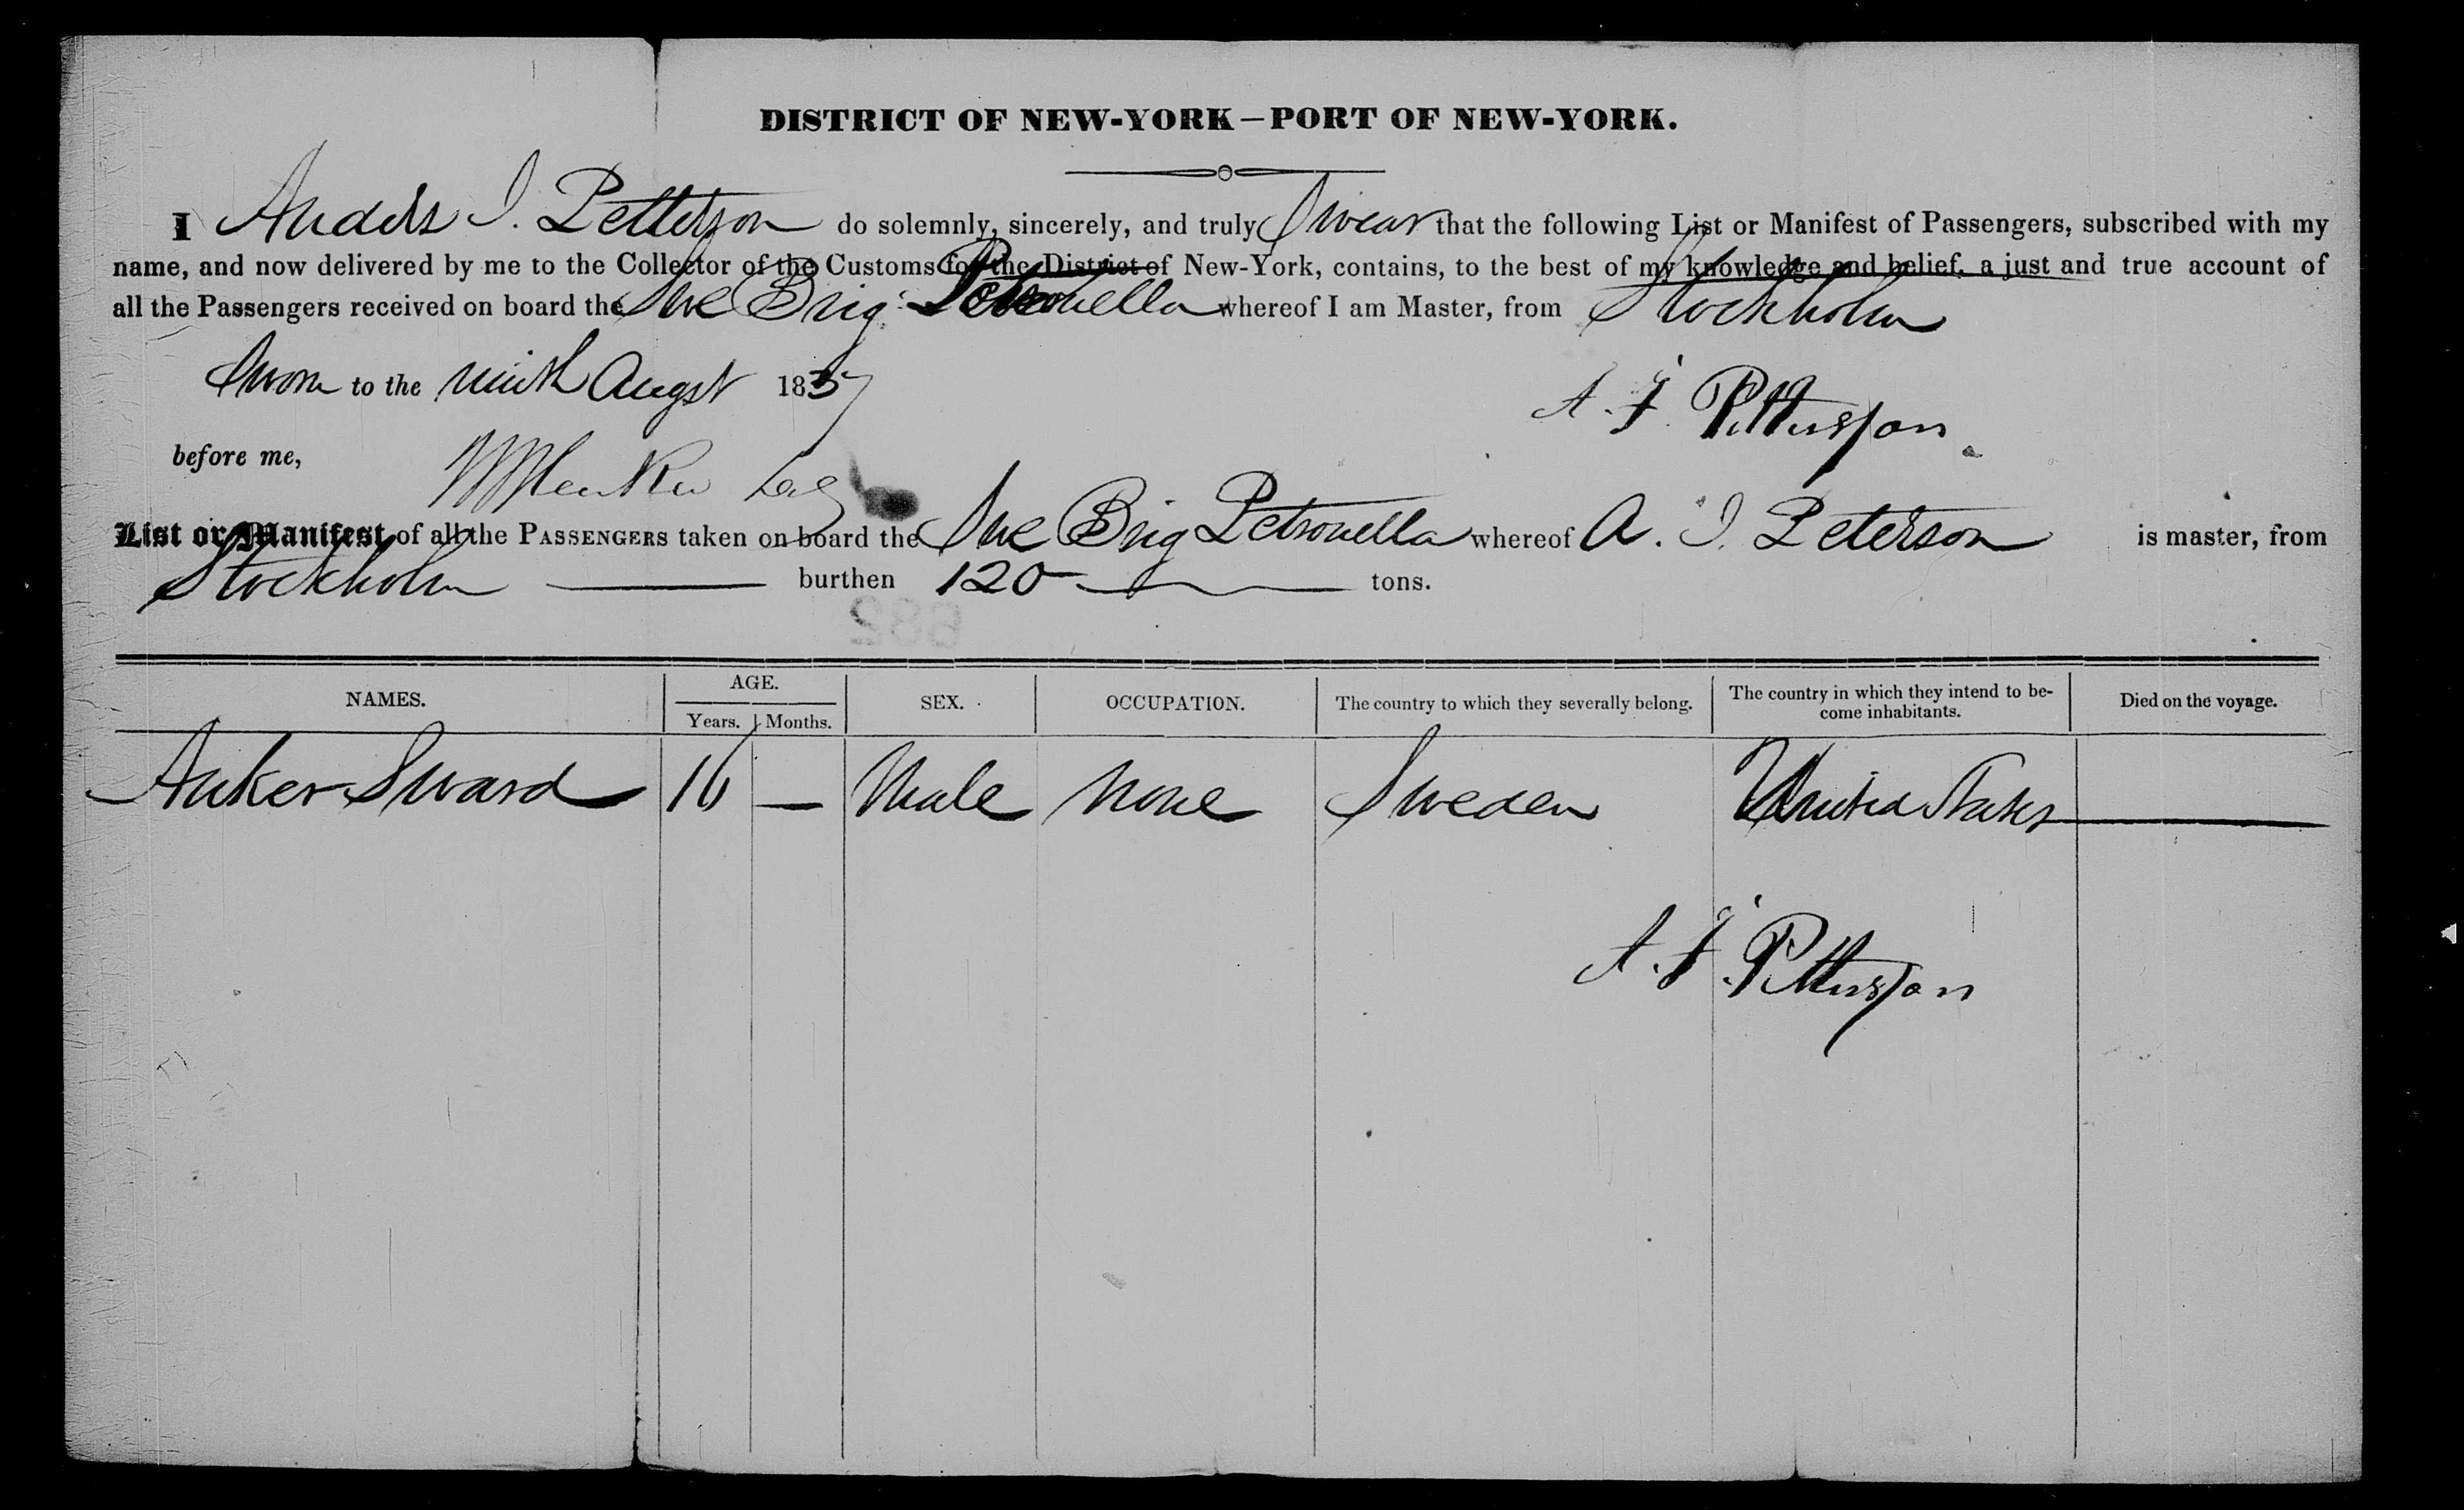 DISTRICT OF NEW-YORK—PORT OF NEW-YORK.
I Anders I. Petterson do solemnly, sincerely, and truly Swear that the following List or Manifest of Passengers, subscribed with my
name, and now delivered by me to the Collector of the Customs for the District of New-York, contains, to the best of my knowledge and belief, a just and true account of
all the Passengers received on board the Swe Brig Petronella whereof I am Master, from Stockholm
Sworn to the ninth Augst 1837
A. J. Pettersson
before me,
List or Manifest of all the PASSENGERS taken on board the Swe Brig Petronella whereof A. I. Peterson is master, from
Stockholm burthen 120 tons.
682
NAMES. AGE. SEX. OCCUPATION. The country to which they severally belong. The country in which they intend to be-
come inhabitants. Died on the voyage.
Years. Months.
Anker Sward 16 — Male None Sweden United States
A. J. Pettersson